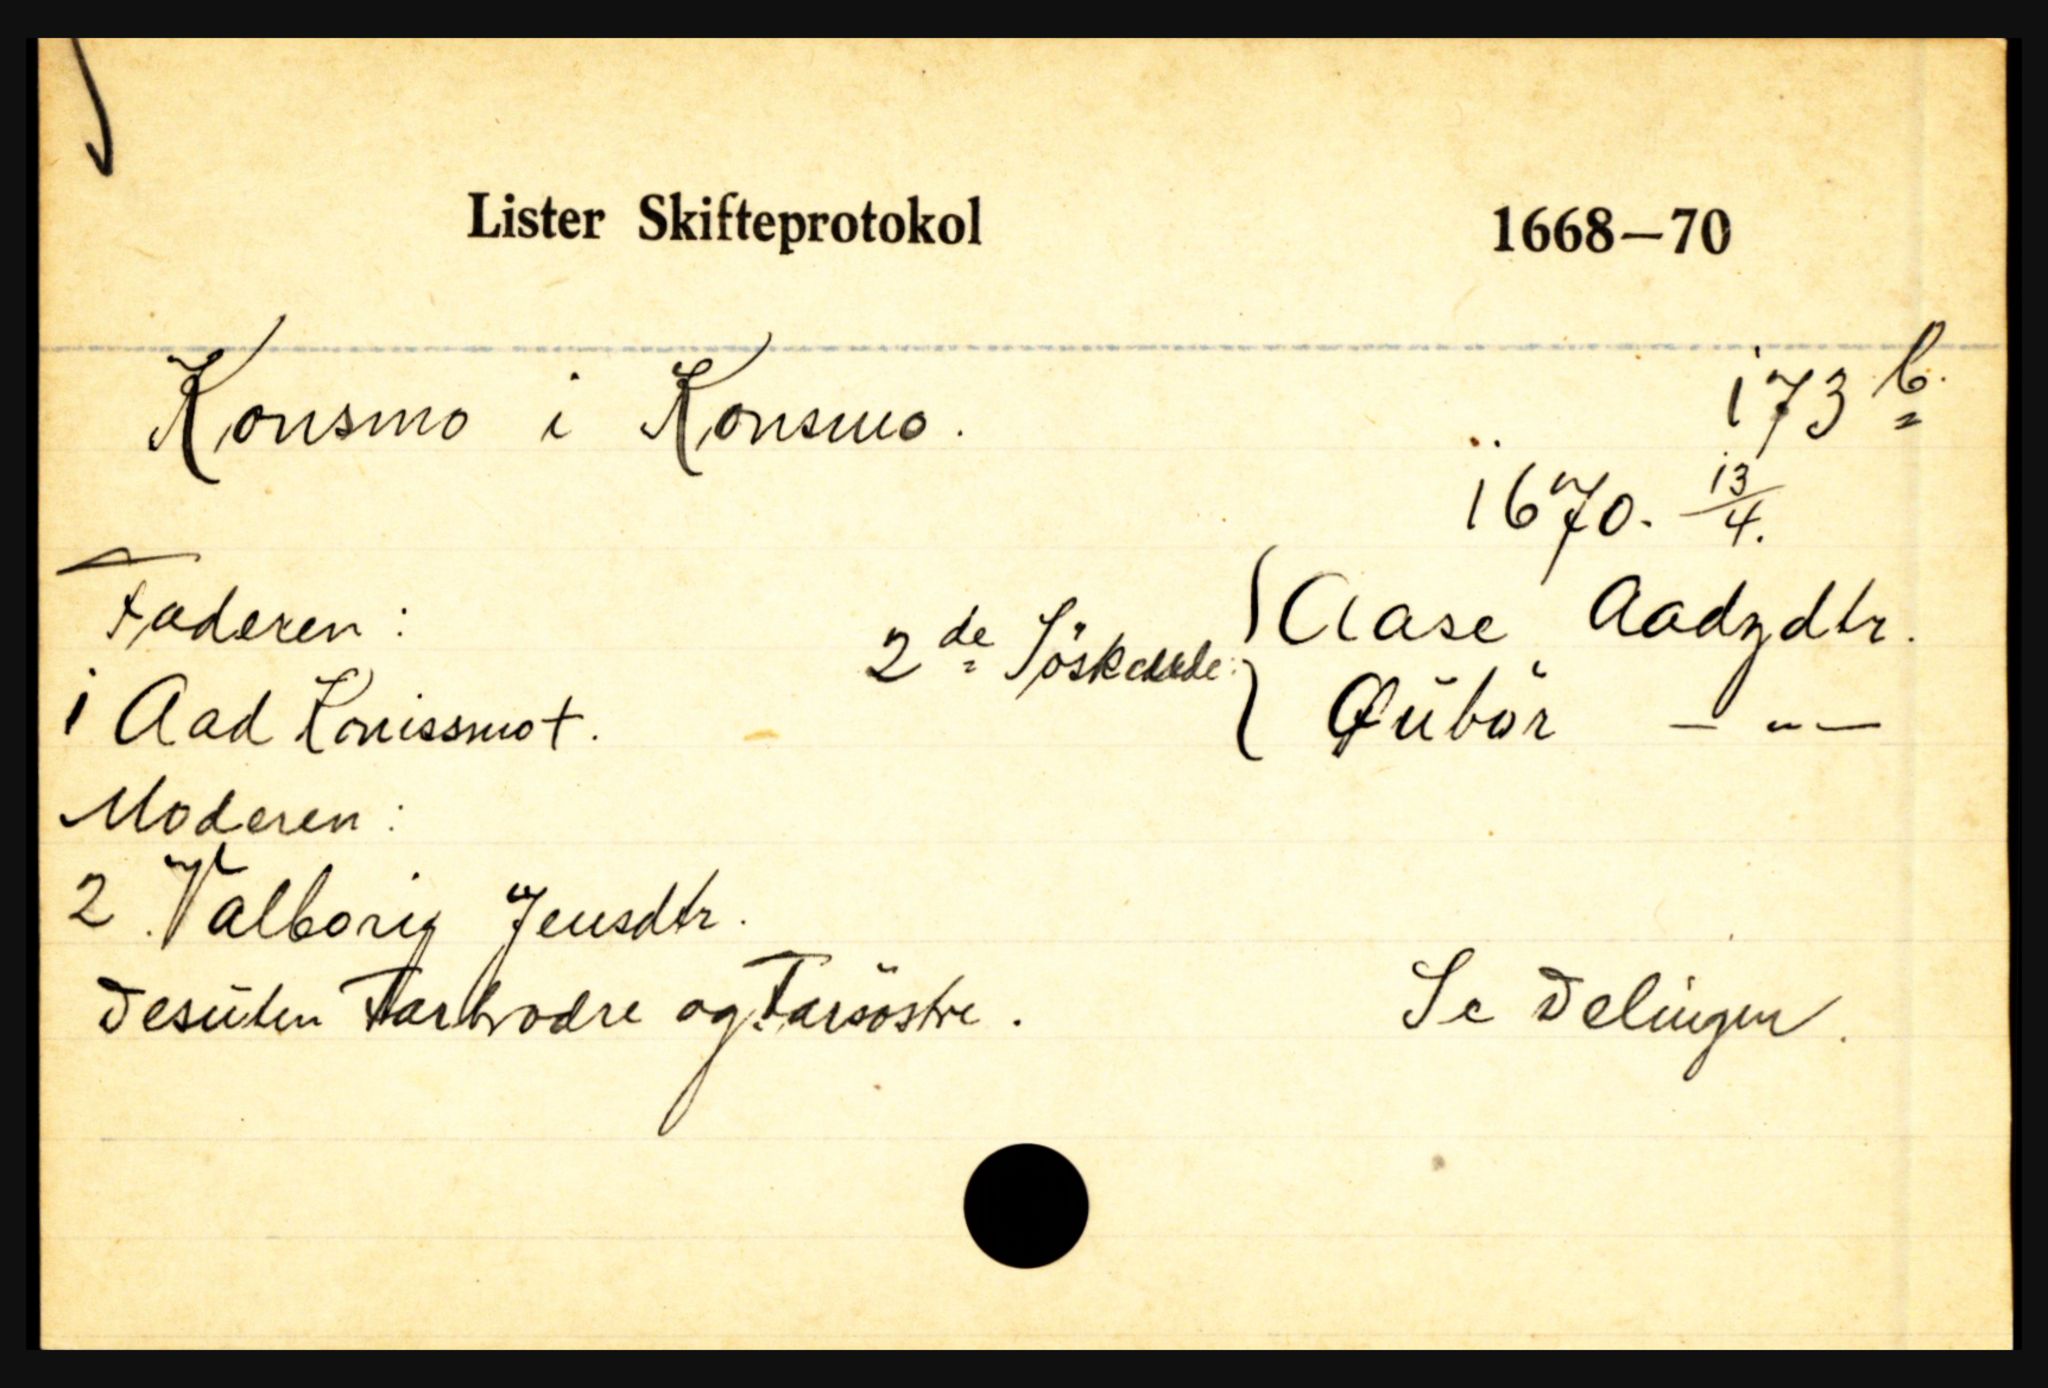 Lister Skifteprotokol 1668—70
Konsmo i Konsmo. 173 b.
1670. 13/4.
Faderen: 2de Söskende: { Aase Aadzdtr.
1 Aad Konissmot. Qübör — " —
Moderen:
2 Valborig Jensdtr.
Desüten Farbrodre og Farsöstre. Se Delingen.